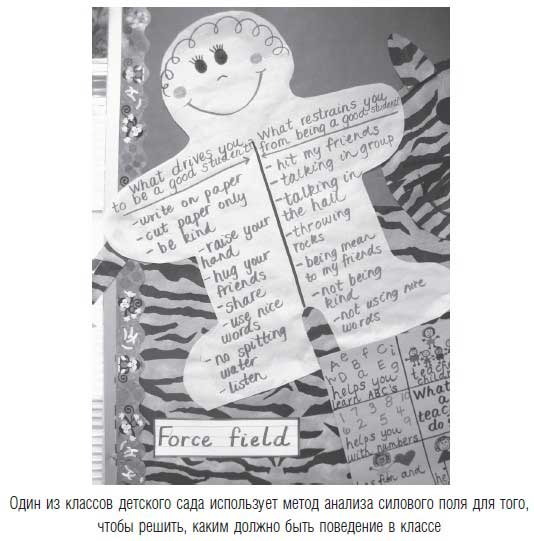 What drives you
to be a good student?
- write on paper
- cut paper only
- be kind
- raise your
hand
- hug your
friends
- share
- use nice
words
- no spitting
water
- listen
What restrains you
from being a good student?
- hit my friends
- talking in group
- talking in
the hall
- throwing
rocks
- being mean
to my friends
- not being
kind
- not using nice
words
Force field
helps you
learn ABC's
helps you
with numbers
What
a
do
Один из классов детского сада использует метод анализа силового поля для того,
чтобы решить, каким должно быть поведение в классе